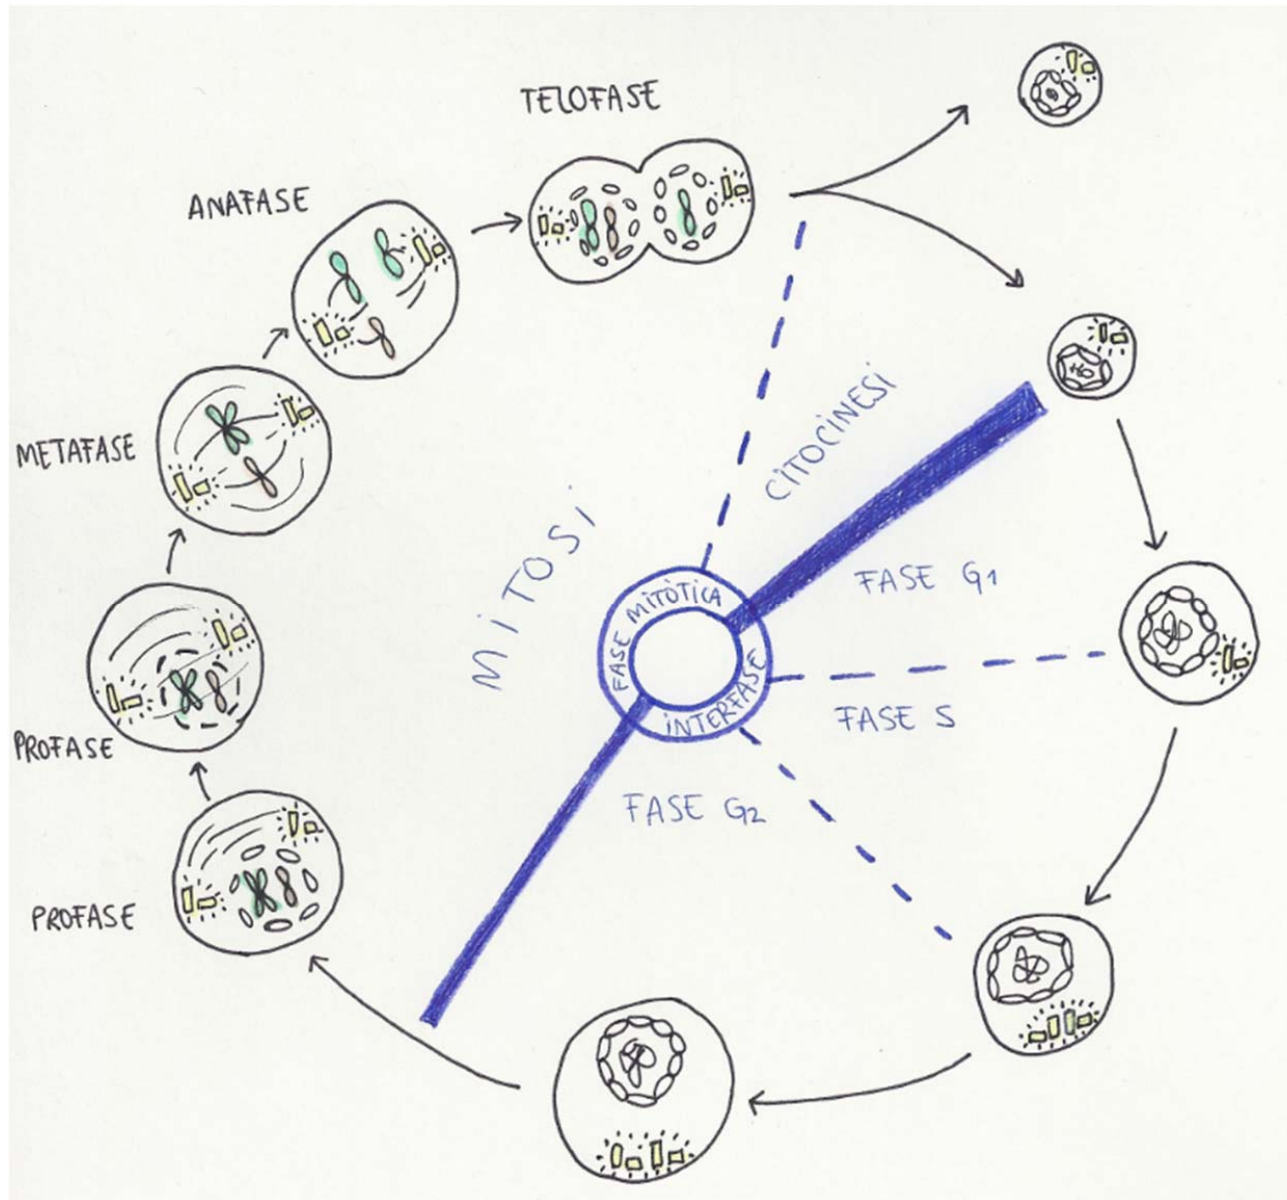 TELOFASE
ANAFASE
METAFASE
PROFASE
PROFASE
MiTOSi
CiTOCiNESi
FASE MiTÒTiCA
iNTERFASE
FASE G1
FASE S
FASE G2